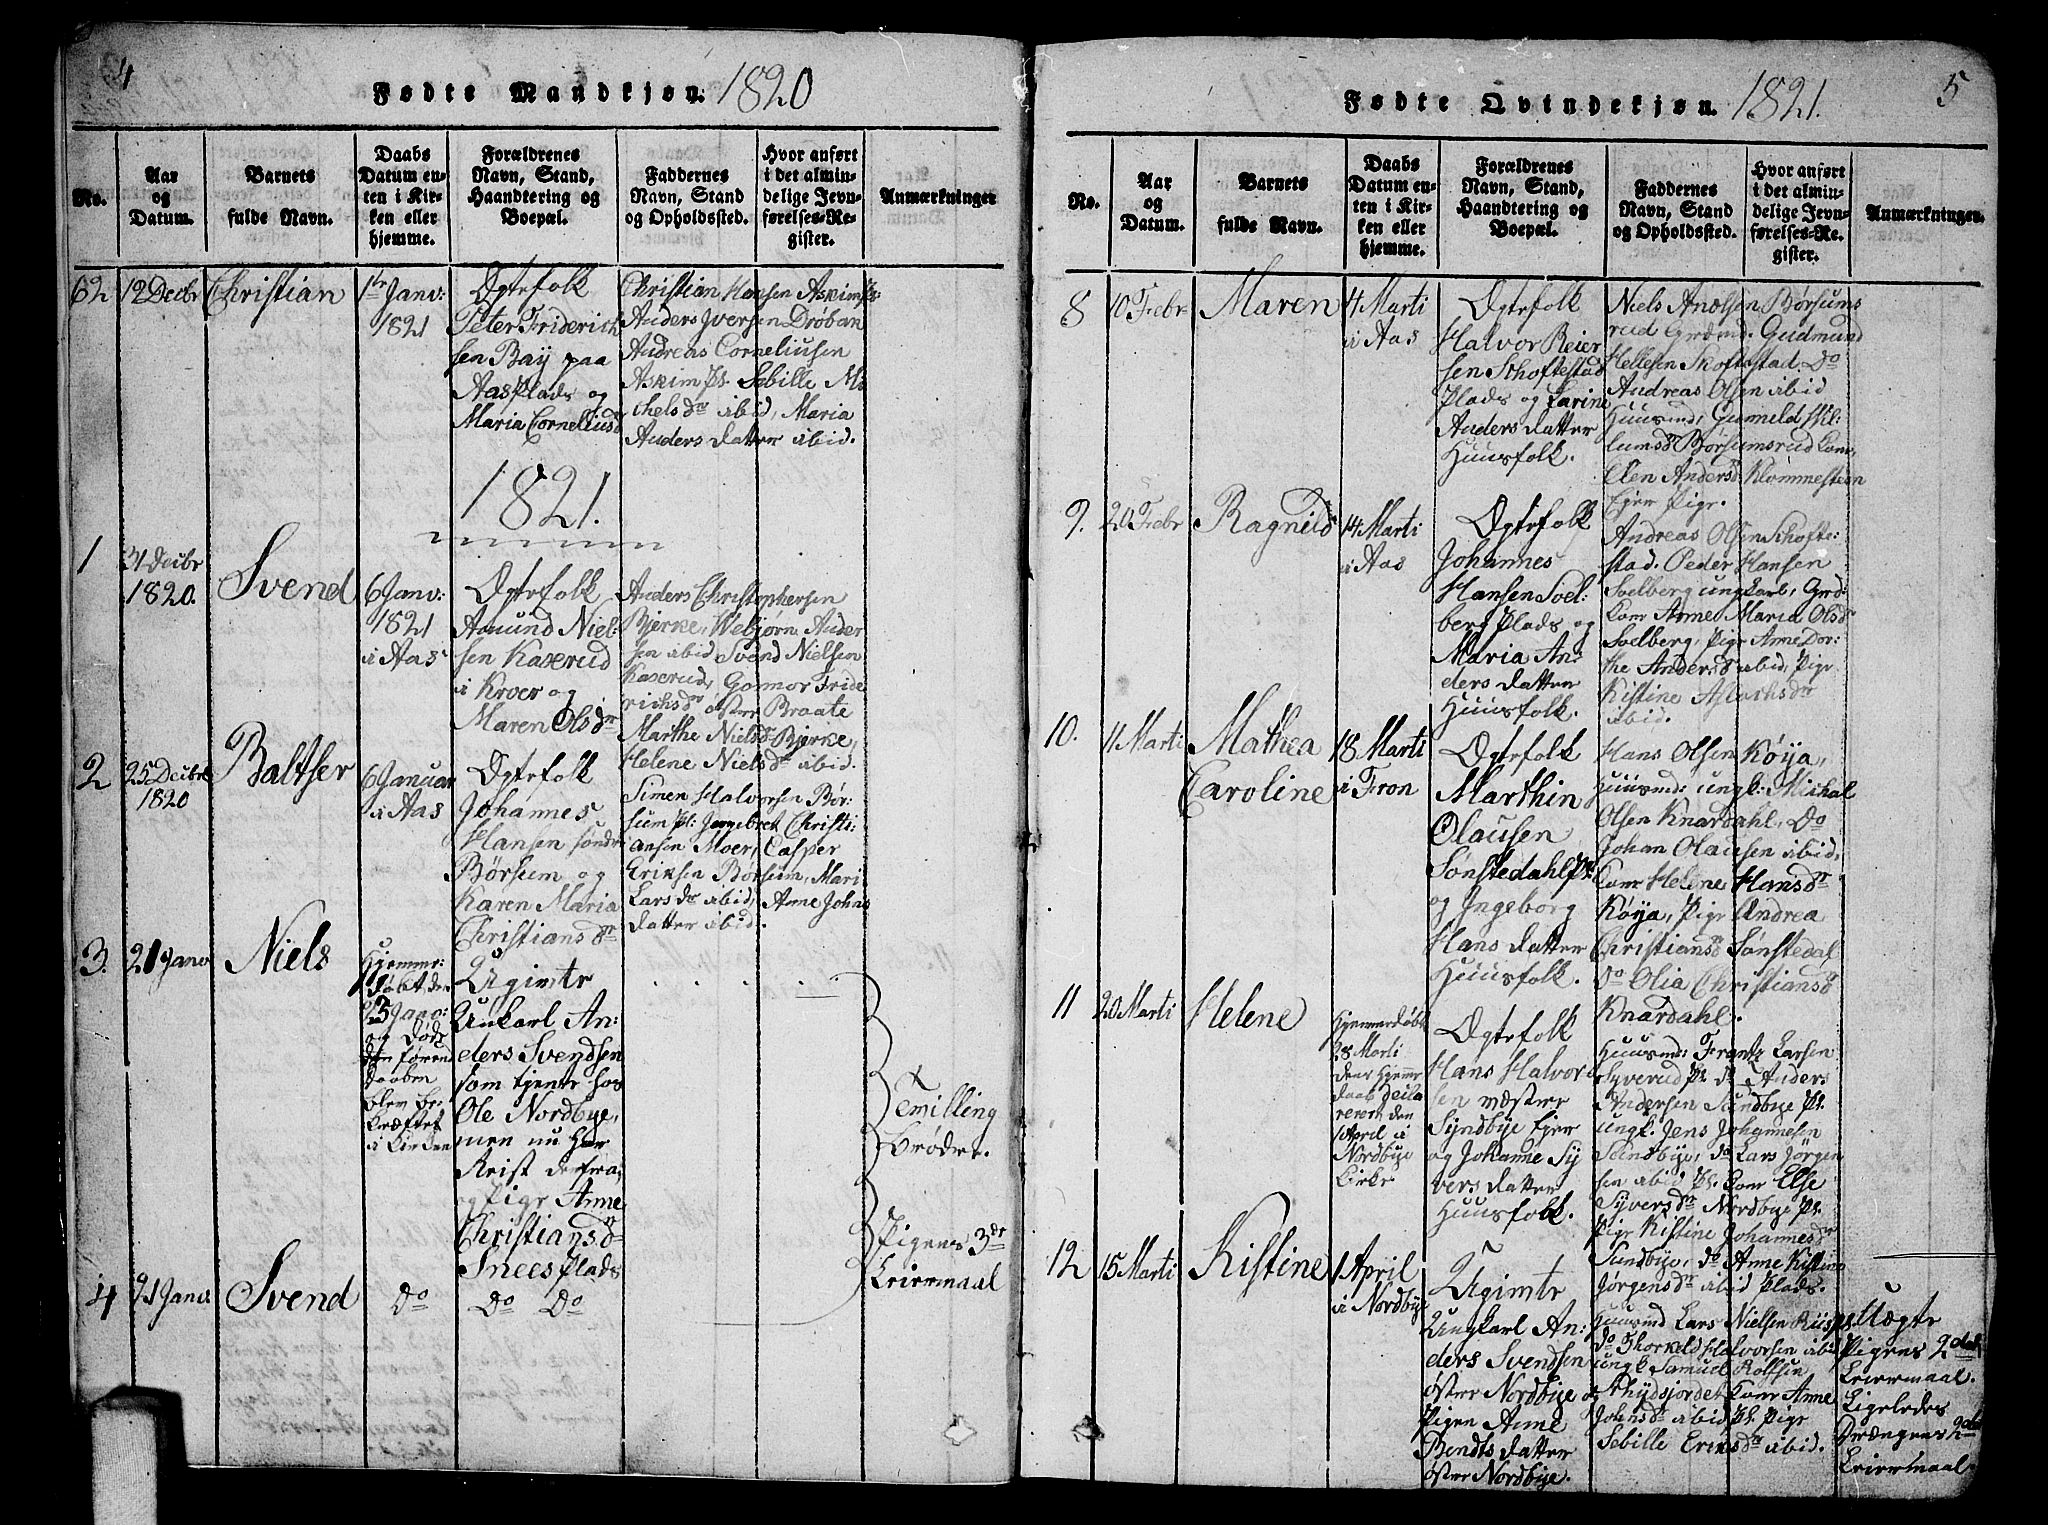 4
Fødte Mandkjøn. 1820
No.
Aar
og
Datum.
Barnets
fulde Navn.
Daabs
Datum en-
ten i Kir-
ken eller
hjemme.
Forældrenes
Navn, Stand,
Haandtering og
Boepæl.
Faddernes
Navn, Stand
og Opholdssted.
Hvor anført
i det almin-
delige Jevn-
førelses-Re-
gister.
Anmærkninger
62
12 Decbr
Christian
1te Janv:
1821
Ægtefolk
Peter Friderich
sen Bay paa
Aas Plads og
Maria Corneliusd
Christian Hansen Askim Pl:
Anders Iversen Drøban
Andreas Corneliusen
Askim Pl. Sebille Mi
chelsdr ibid, Maria
Anders datter ibid.
1821.
1
31 Decbr
1820.
Svend
6 Janv:
1821
i Aas
Ægtefolk
Amund Niel:
sen Kaxerud
i Kroer og
Maren Olsdr
Anders Christophersen
Bjerke, Webjørn Ander
sen ibid Svend Nielsen
Kaxerud, Gonnor Fride
richsdr øster Braate
Marthe Nielsd Bjerke,
Helene Nielsdr ibid.
2
25 Decbr
1820
Baltser
6 Januar
i Aas
Ægtefolk
Johannes
Hansen søndre
Børsum og
Karen Maria
Christiansdr
Simen Halvorsen Bør:
sum Pl: Jngebret Christi:
ansen Moer, Casper
Eriksen Børsum, Mari
Larsdr ibid, Anne Johns
datter ibid.
3.
21 Janv
Niels
Hjemme:
døbt den
25 Janv:
og Døde
den førend
Daaben
blev be:
kræftet
i Kirken
Uægte
Unkarl An:
ders Svendsen
som tjente hos
Ole Nordbye,
men nu har
Reist derfra,
og Pige Anne
Christiansdr
Snees Plads
Tvilling
brødre.
Pigens 3de
Leiermaal
4
21 Janv
Svend
Do
Do Do
Fødte Qvindekjøn. 1821.
5
No.
Aar
og
Datum.
Barnets
fulde Navn.
Daabs
Datum en-
ten i Kir-
ken eller
hjemme.
Forældrenes
Navn, Stand,
Haandtering og
Boepæl.
Faddernes
Navn, Stand
og Opholdssted.
Hvor anført
i det almin-
delige Jevn-
førelses-Re-
gister.
Anmærkninger.
8
10 Febr
Maren
4 Marti
i Aas
Ægtefolk
Halvor Reier
sen Skoftestad
Plads og Karine
Anders datter
Huusfolk.
Niels Anolsen Børsums
rud Grdmd. Gudmund
Hellesen Skoftestad Do
Andreas Olsen ibid
Huusmd, Gunneld
Børsumsrud Kone,
Elen Andersd Klommesteen
Ejer Pige.
9.
20 Febr
Ragnild
14 Marti
i Aas
Ægtefolk
Johannes
Hansen Soel:
berg Plads og
Maria An:
ders datter
Huusfolk.
Andreas Olsen Skofte:
stad. Peder Hansen
Soelberg ungkarl, Grd
Kone Anne Maria Olsdr
Soelberg, Pige Anne Dor:
the Andersd ibid, Pige
Kistine Aslachsdr
ibid.
10.
11 Marti
Mathea
Caroline
18 Marti
i Fron
Ægtefolk
Marthin
Olausen
Sønstedahl Pl:
og Jngeborg
Hans datter
Huusfolk.
Hans Olsen Køya,
Huusmd: ungk: Michal
Olsen Knardahl, Do
Johan Olausen ibid,
Kone Helene Hansdr
Køya, Pige Andrea
Christiansd Sønstedal
Do Olia Christiansd
Knardahl.
11
20 Marti
Helene
Hjemmedøbt
28 Marti
dens Hjemme
daab decla
reren den
1 April i
Nordbye
Kirke
Ægtefolk
Hans Halvor
sen væstre
Syndbye Ejer
og Johanne Sy
vers datter
Huusfolk.
Huusmd: Frantz Larsen
Syverud Pl. do Anders
Andersen Sundbye Pl.
ungk. Jens Johannesen
Sundbye, do Lars Jørgen
sen ibid Pl. Kone Else
Syversdr Nordbye Pl.
Pige Kistine Johannesdr
Sundbye, do Anne Kistine
Jørgensdr ibid Plads.
12
15 Marti
Kistine
1 April
i Nordbye
Uægte
Ungkarl An:
ders Svendsen
øster Nordbye og
Pigen Anne
Bendts datter
øster Nordbye.
Huusmd Lars Nielsen
do Thorkeld Halvorsen ibid
ungk. Samuel Rolfsen
Skydsjordet Kone Anne
Johnsdr ibid Pl. Pige
Sebille Eriksdr ibid.
Uægte
Pigens 2det
Leiermaal.
Ligeledes
Drængens 2det
Leiermaal.